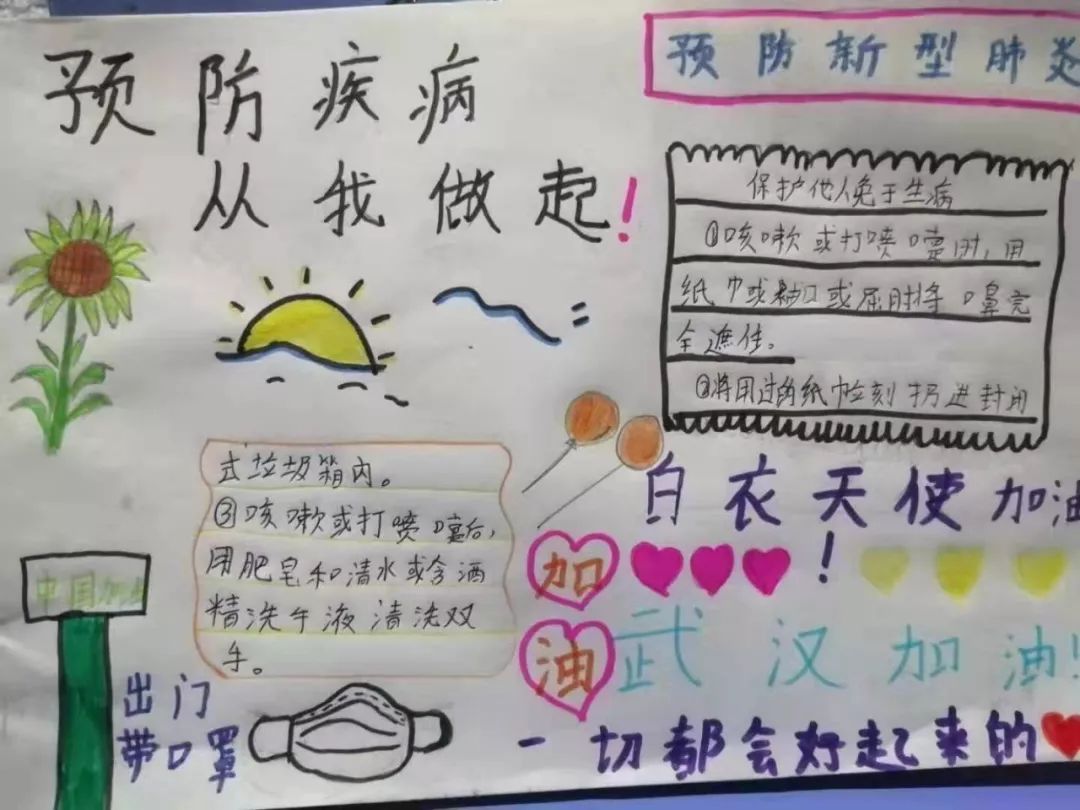 预防疾病
从我做起！
预防新型肺炎
保护他人免于生病
①咳嗽或打喷嚏时，用
纸巾或袖口或屈肘将口鼻完
全遮住。
②将用过的纸巾立刻扔进封闭
式垃圾箱内。
③咳嗽或打喷嚏后，
用肥皂和清水或含酒
精洗手液清洗双
手。
白衣天使加油
！
加
油
武汉加油！
一切都会好起来的
中国加油
出门
带口罩